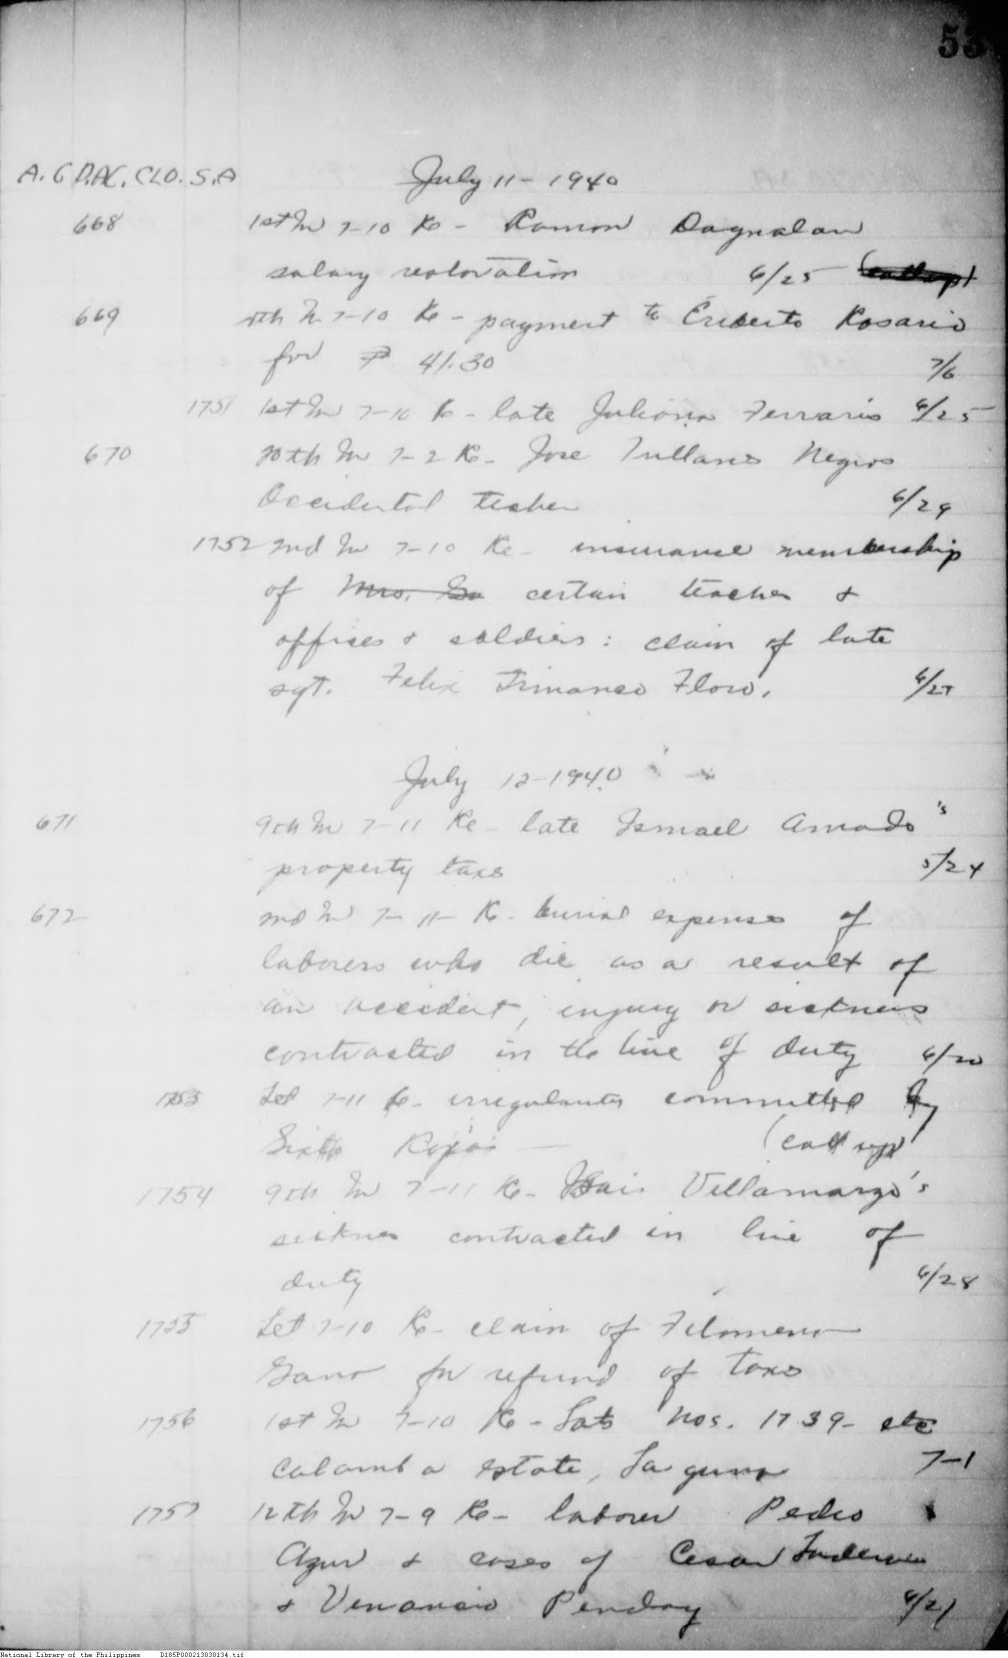 53
A.G D.AC. CLO. S.A
July 11 - 1940
668 1st In 7-10 Re - Ramon Dagnalan
salary restoration 6/25
669 4th In 7-10 Re - payment to Eriberto Rosario
for ₱ 41.30 7/6
1751 1st In 7-10 Re - late Juliana Ferraris 6/25
670 10th In 7-2 Re - Jose Negros
Occidental teacher 6/29
1752 2nd In 7-10 Re - insurance membership
of Mrs. certain teacher &
offices & soldiers: claim of late
sgt. Felix Flow. 6/27
July 12-1940
671 9th In 7-11 Re - late Ismael Amado's
property taxes 5/24
672 2nd In 7-11- Re - burial expenses of
laborers who die as a result of
an accident, injury or sickness
contracted in the line of duty 6/20
1753 Let 7-11 Re - irregularities committed by
Sixto Rojas — (call up)
1754 9th In 7-11 Re - Villamarzo's
sickness contracted in line of
duty 6/28
1755 Let 7-10 Re - claim of Filomena
Gano for refund of taxes
1756 1st In 7-10 Re - Lots Nos. 1739- etc
Calamba estate, Laguna 7-1
1757 12th In 7-9 Re - laborer Pedro
Azur & cases of Cesar
& Venancio Penday 6/21
National Library of the Philippines D185P000213030134.tif